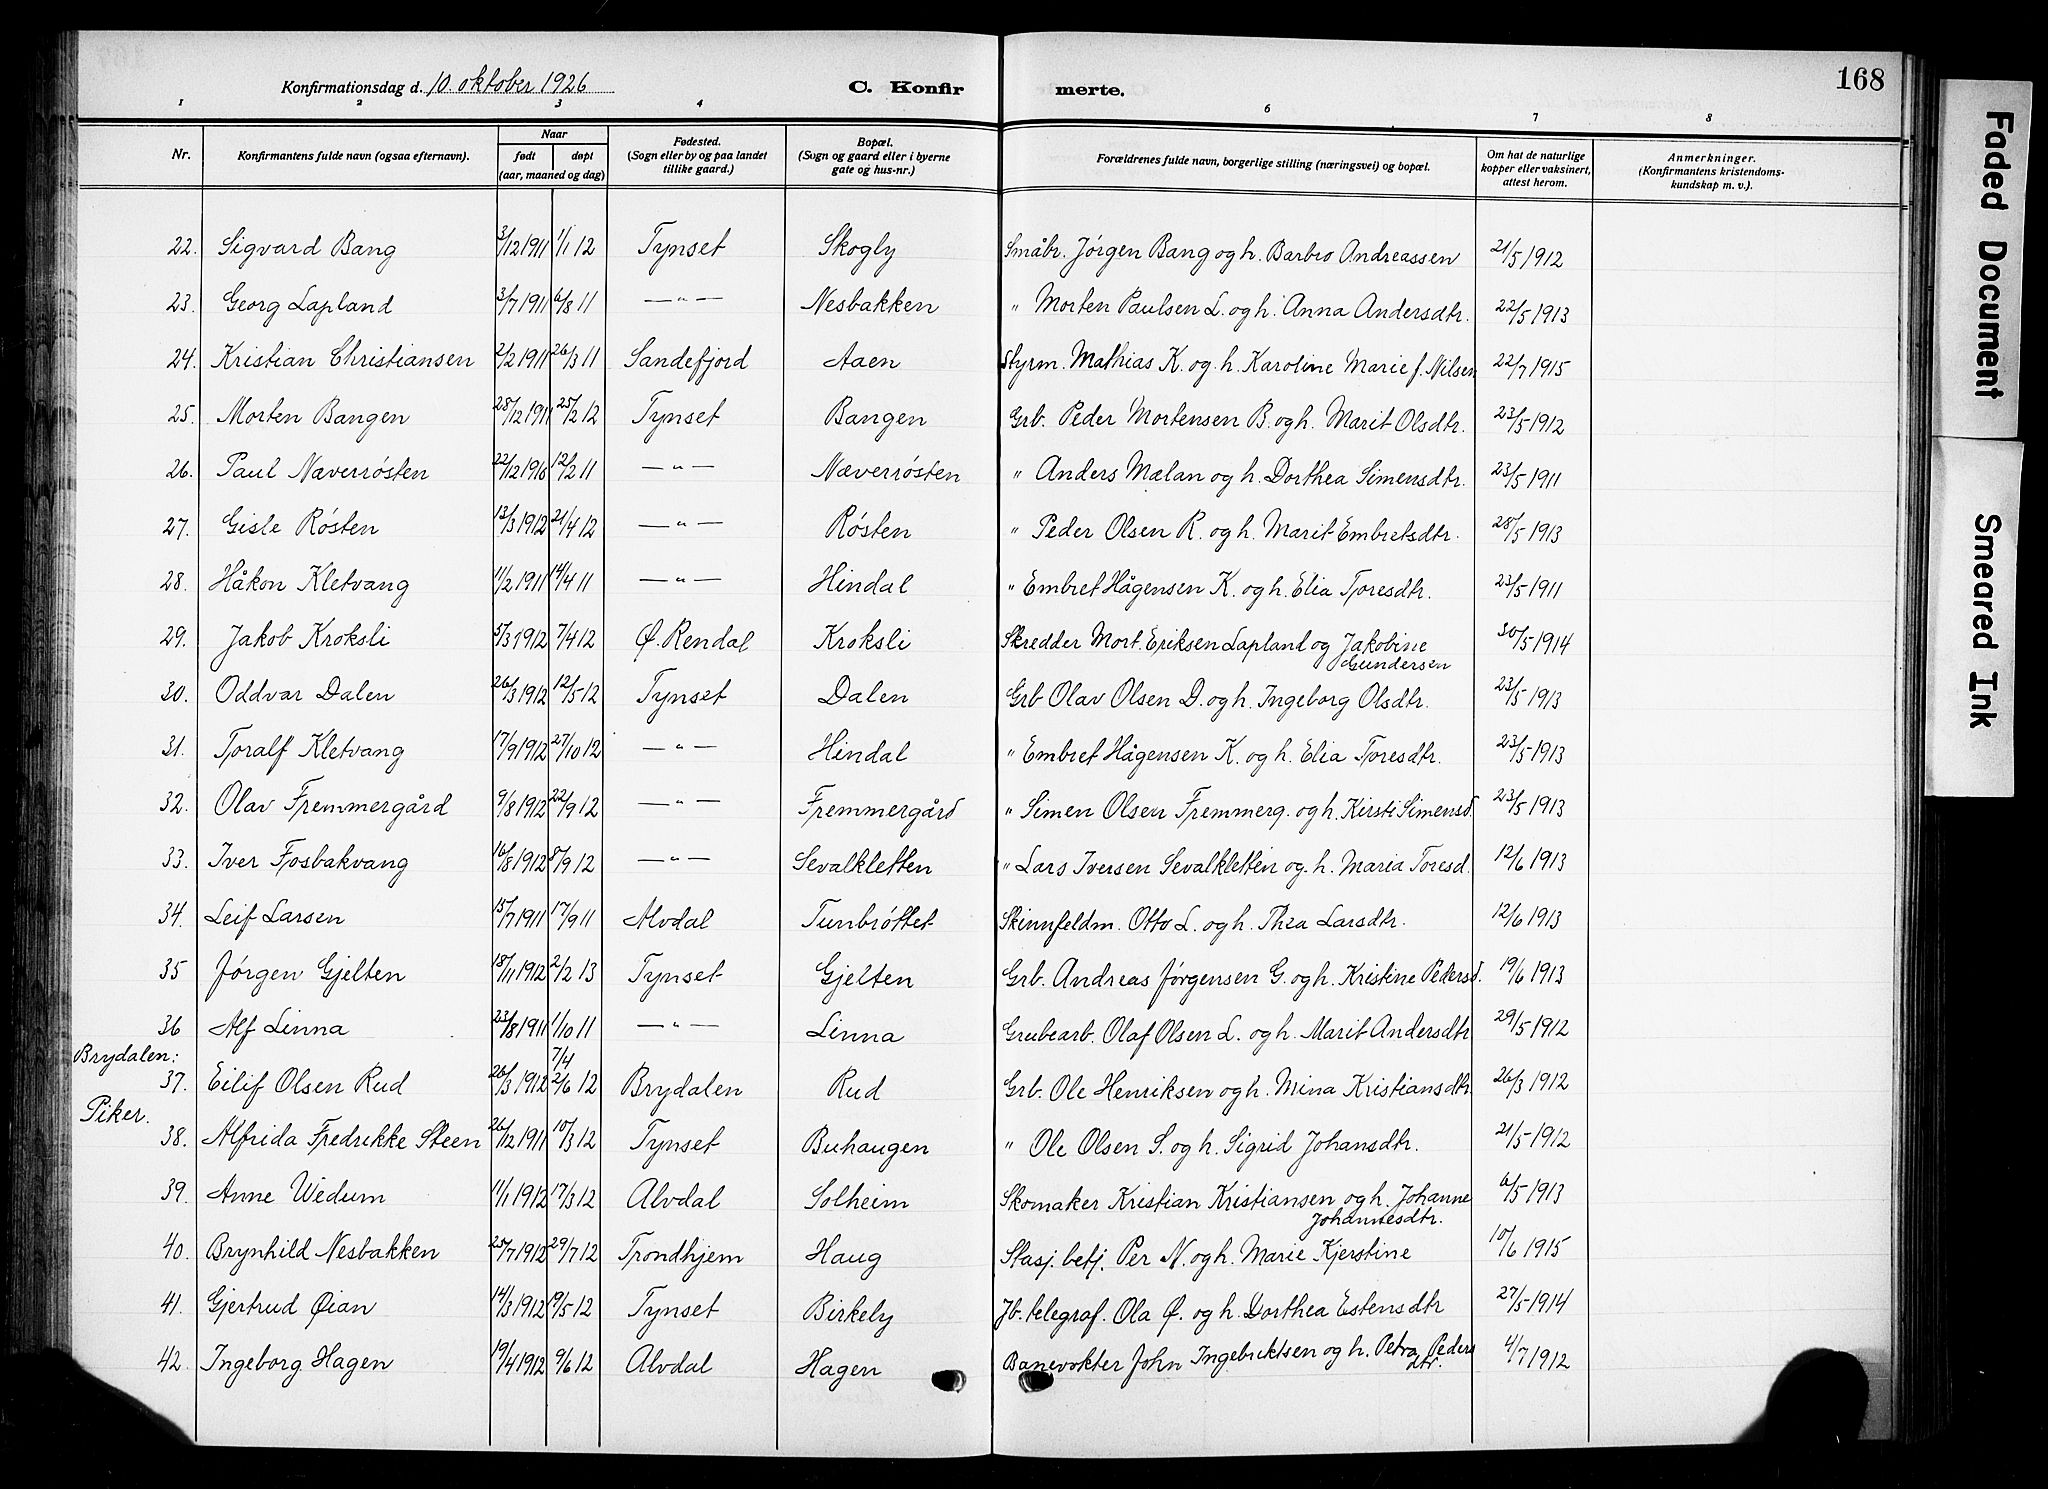 168
Konfirmationsdag d. 10. oktober 1926 C. Konfirmerte.
1 2 3 4 5 6 7 8
Nr. Konfirmantens fulde navn (ogsaa efternavn). Naar født døpt (aar, maaned og dag) Fødested. (Sogn eller by og paa landet tillike gaard.) Bopæl. (Sogn og gaard eller i byerne gate og hus-nr.) Forældrenes fulde navn, borgerlige stilling (næringsvei) og bopæl. Om hat de naturlige kopper eller vaksinert, attest herom. Anmerkninger. (Konfirmantens kristendomskundskap m. v.).
22. Sigvard Bang 3/12 1911 1/1 12 Tynset Skogly Småbr. Jörgen Bang og h. Barbro Andreassen 21/5 1912
23. Georg Lapland 3/7 1911 6/8 11 — " — Nesbakken " Morten Paulsen L. og h. Anna Andersdtr. 22/5 1913
24. Kristian Christiansen 2/2 1911 26/3 11 Sandefjord Aaen Styrm. Mathias K. og h. Karoline Marie f. Nilsen 22/7 1915
25. Morten Bangen 28/12 1911 25/2 12 Tynset Bangen Grb. Peder Mortensen B. og h. Marit Olsdtr. 23/5 1912
26. Paul Næverrösten 22/12 1910 12/2 11 — " — Næverrösten " Anders Mælan og h. Dorthea Simensdtr. 23/5 1911
27. Gisle Rösten 13/3 1912 21/4 12 — " — Rösten " Peder Olsen R. og h. Marit Embretsdtr. 28/5 1913
28. Håkon Kletvang 11/2 1911 14/4 11 — " — Hindal " Embret Hågensen K. og h. Elia Toresdtr. 23/5 1911
29. Jakob Kroksli 5/3 1912 7/4 12 Ø. Rendal Kroksli Skredder Mort. Eriksen Lapland og Jakobine Gundersen 30/5 1914
30. Oddvar Dalen 26/3 1912 12/5 12 Tynset Dalen Grb Olav Olsen D. og h. Ingeborg Olsdtr. 23/5 1913
31. Toralf Kletvang 17/9 1912 27/10 12 — " — Hindal " Embret Hågensen K. og h. Elia Toresdtr. 23/5 1913
32. Olav Fremmergård 9/8 1912 22/9 12 — " — Fremmergård " Simen Olsen Fremmerg. og h. Kirsti Simensd. 23/5 1913
33. Iver Fosbakvang 16/8 1912 8/9 12 — " — Sevalkletten " Lars Iversen Sevalkletten og h. Maria Toresd. 12/6 1913
34. Leif Larsen 15/7 1911 17/9 11 Alvdal Tunbröttet Skinnfeldm. Otto L. og h. Thea Larsdtr. 12/6 1913
35 Jörgen Gjelten 18/11 1912 2/2 13 Tynset Gjelten Grb. Andreas Jørgensen G. og h. Kristine Pedersd. 19/6 1913
36 Alf Linna 23/8 1911 1/10 11 — " — Linna Grubearb. Olaf Olsen L. og h. Marit Andersdtr 29/5 1912
Brydalen:
37. Eilif Olsen Rud 26/3 1912 7/4 2/6 12 Brydalen Rud Grb. Ole Henriksen og h. Mina Kristiansdtr. 26/3 1912
Piker.
38. Alfrida Fredrikke Steen 26/12 1911 10/3 12 Tynset Buhaugen " Ole Olsen S. og h. Sigrid Johansdtr. 21/5 1912
39. Anne Wedum 11/1 1912 17/3 12 Alvdal Solheim Skomaker Kristian Kristiansen og h. Johanne Johannesdtr. 6/5 1913
40. Brynhild Nesbakken 25/7 1912 29/7 12 Trondhjem Haug Stasj. betj. Per N. og h. Marie Kjerstine 10/6 1915
41. Gjertrud Øian 14/3 1912 19/5 12 Tynset Birkely Jb. telegraf. Ola Ø. og h. Dorthea Estensdtr 27/5 1914
42. Ingeborg Hagen 19/4 1912 9/6 12 Alvdal Hagen Banevokter John Ingebriktsen og h. Petra Pedersdtr. 4/7 1912
Faded Document
Smeared Ink